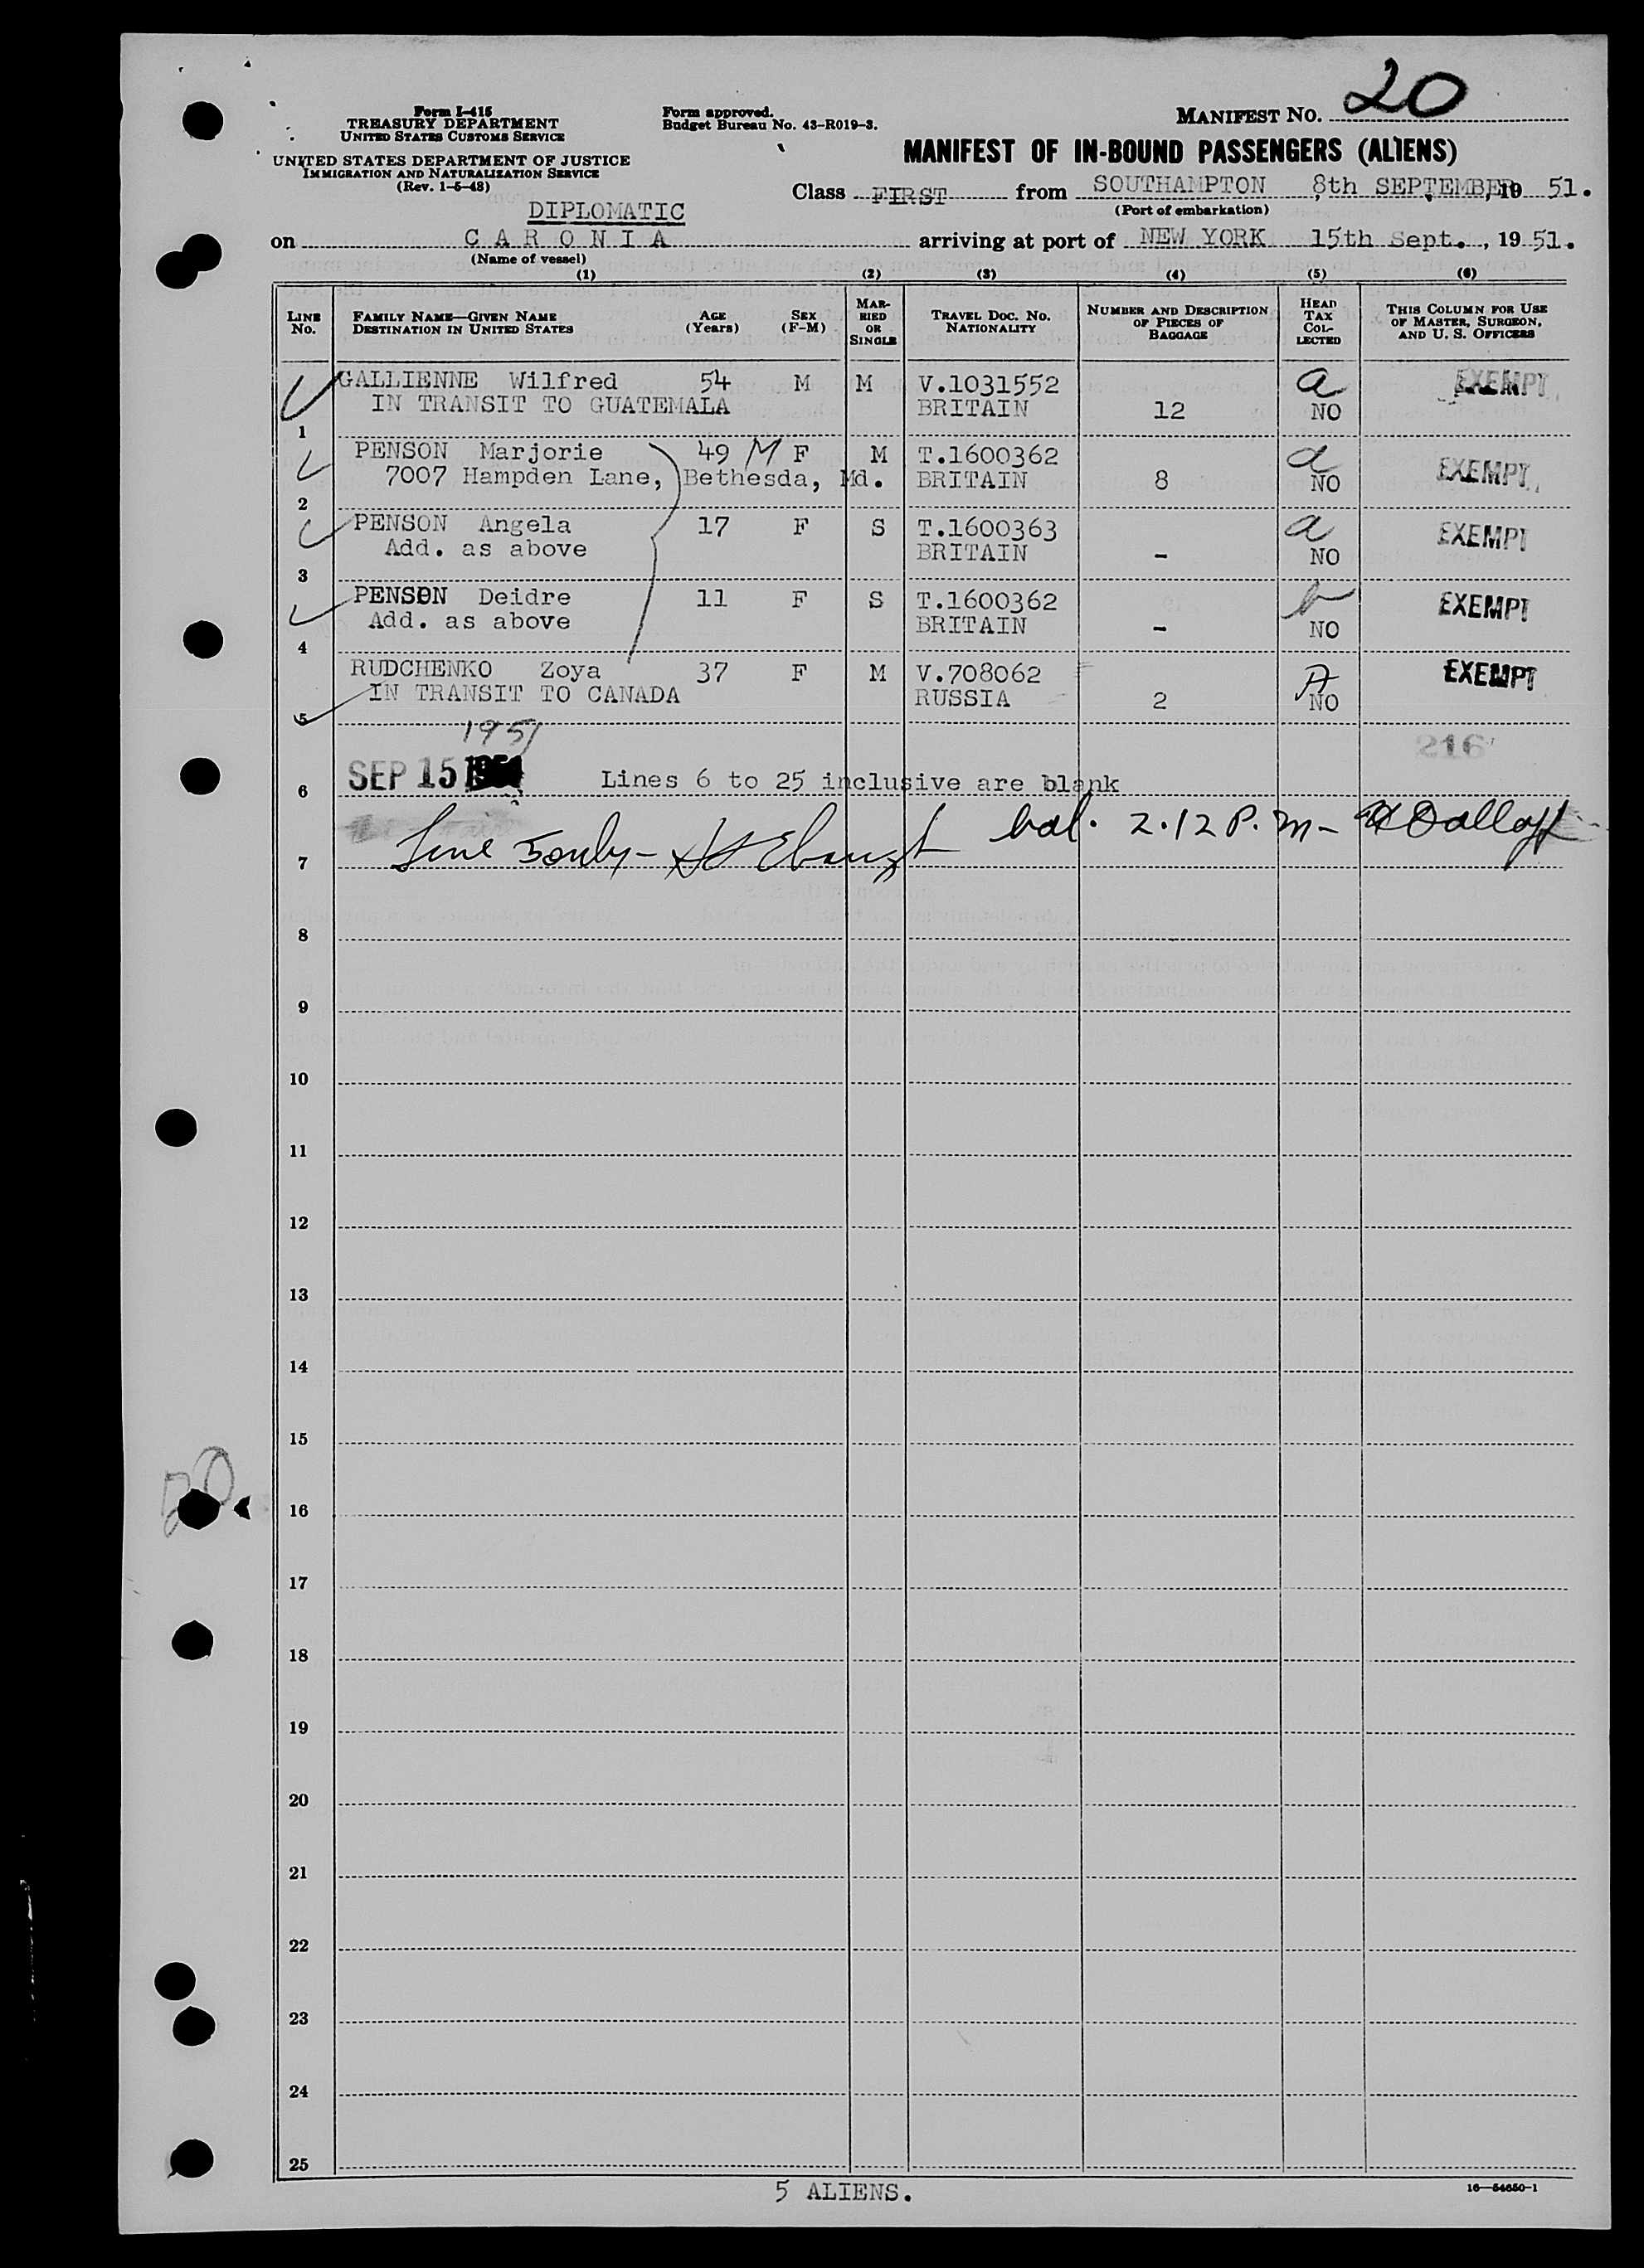 MANIFEST NO. 20
Form I-415
TREASURY DEPARTMENT
UNITED STATES CUSTOMS SERVICE
Form approved.
Budget Bureau No. 43-R019-3.
UNITED STATES DEPARTMENT OF JUSTICE
IMMIGRATION AND NATURALIZATION SERVICE
(Rev. 1-5-48)
MANIFEST OF IN-BOUND PASSENGERS (ALIENS)
Class FIRST from SOUTHAMPTON 8th SEPTEMBER, 19 51.
(Port of embarkation)
DIPLOMATIC
on CARONIA arriving at port of NEW YORK 15th Sept., 19 51.
(Name of vessel)
(1) (2) (3) (4) (5) (6)
LINE No. FAMILY NAME—GIVEN NAME DESTINATION IN UNITED STATES AGE (Years) SEX (F-M) MARRIED OR SINGLE TRAVEL DOC. NO. NATIONALITY NUMBER AND DESCRIPTION OF PIECES OF BAGGAGE HEAD TAX COLLECTED THIS COLUMN FOR USE OF MASTER, SURGEON, AND U. S. OFFICERS
GALLIENNE Wilfred 54 M M V.1031552 a EXEMPT
IN TRANSIT TO GUATEMALA BRITAIN 12 NO
1
PENSON Marjorie 49 M F M T.1600362 a EXEMPT
7007 Hampden Lane, Bethesda, Md. BRITAIN 8 NO
2
PENSON Angela 17 F S T.1600363 a EXEMPT
Add. as above BRITAIN - NO
3
PENSON Deidre 11 F S T.1600362 EXEMPT
Add. as above BRITAIN - NO
4
RUDCHENKO Zoya 37 F M V.708062 A EXEMPT
IN TRANSIT TO CANADA RUSSIA 2 NO
5
1951
216
SEP 15
6 Lines 6 to 25 inclusive are blank
Line 5 only - bal. 2.12 P.M -
7
8
9
10
11
12
13
14
15
20
16
17
18
19
20
21
22
23
24
25
5 ALIENS.
16—54650-1